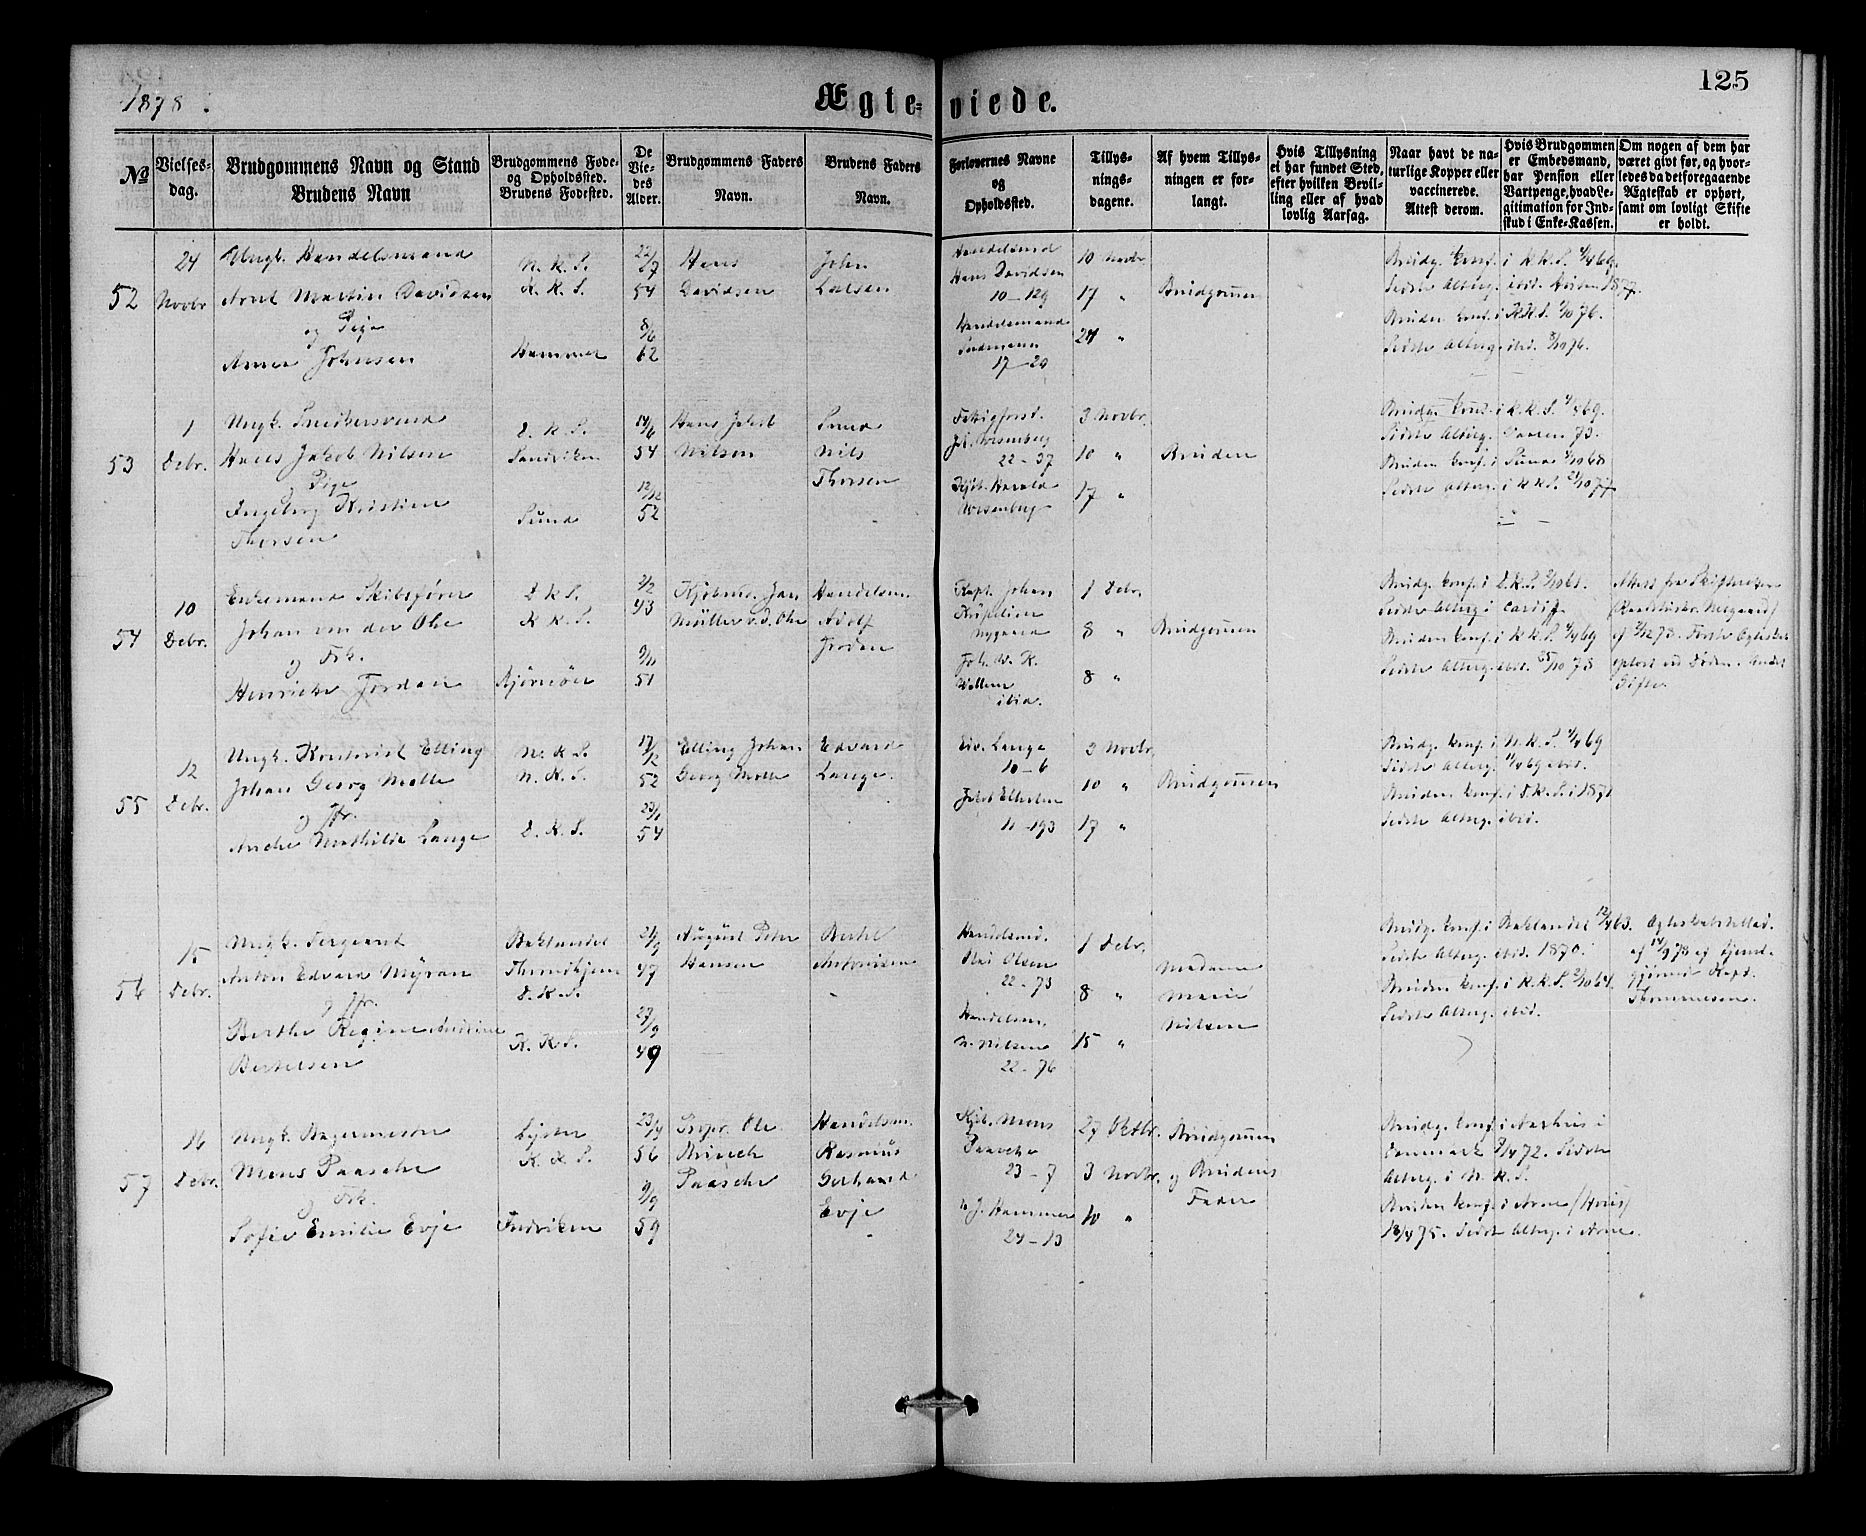 1878.
Ægteviede.
125
No
Vielsesdag.
Brudgommens Navn og Stand
Brudens Navn
Brudgommens Fødeog Opholdssted.
Brudens Fødested.
De Viedes Alder.
Brudgommens Faders Navn.
Brudens Faders Navn.
Forlovernes Navne og Opholdssted.
Tillysningsdagene.
Af hvem Tillysningen er forlangt.
Hvis Tillysning ei har fundet Sted, efter hvilken Bevilling eller af hvad lovlig Aarsag.
Naar havt de naturlige Kopper eller vaccinerede. Attest derom.
Hvis Brudgommen er Embedsmand, har Pension eller Vartpenge, hvad Legitimation for Indskud i Enke-Kassen.
Om nogen af dem har været givt før, og hvorledes da det foregaaende Ægteskab er ophørt, samt om lovligt Skifte er holdt.
52
24 Novbr
Ungk. Handelsmand
Arnt Martin Davidsen
og Pige
Anna Johnsen
N. K. S.
K. K. S.
Hammer
22/7 54
8/6 62
Hans
Davidsen
John
Handelsmd
Hans Davidsen
10–129
Handelsmand
17–20
10 Novbr.
17 "
24 "
Brudgommen
Brudg. konf. i K.K.S. 4/4 69.
Sidste Altberg. ibid. Høsten 1877.
Bruden konf. i K.K.S. 1/10 76.
Sidste Altberg. ibid. 8/10 76.
53
1 Debr.
Ungk. Snedkersvend
Hans Jakob Nilsen
og Pige
Ingeborg Kristine
Thorsen
D. K. S.
Sandviken
Sund
14/6 54
12/12 52
Hans Jakob
Nilsen
Nils
Thorsen
Fattigforst.
J. A. Wesenberg
22–37
Kjøb. Harald
Wesenberg
3 Novbr.
10 "
17 "
Bruden
Brudg. konf. i K.K.S. 4/4 69.
Sidste Altberg. Vaaren 73.
Bruden konf. i Sund 4/10 68
Sidste Altberg. i K.K.S. 21/10 77
54
10 Debr.
Enkemand Skibsfører
Johan von der Ohe
og Frk.
Henriette Jordan
D. K. S.
K. K. S.
Bjørnøer
2/2 43
9/11 51
Kjøbmd. Jan
Müller v. d. Ohe
Handelsm.
Adolf
Jordan
Kapt. Johan
Krüpelien
Nygaard
Joh. W. K.
Willum
ibid.
1 Debr.
8 "
8 "
Brudgommen
Brudg. konf. i D.K.S. 7/10 61.
Sidste Altberg. i Cardiff.
Bruden konf. i K.K.S. 4/4 69
Sidste Altberg. ibid. 25/10 75
Attest fra Skifteretten
af 7/12 78. Første Ægteskab
opløst ved Døden. Andet
Gifte.
55
12 Debr.
Ungk. Kontorist Elling
Johan Georg Molle
og Jfr.
Anche Mathilde Lange
N. K. S.
N. K. S.
D. K. S.
17/12 52
23/1 54
Elling Johan
Georg Molle
Edvard
Lange
Eiv. Lange
10–6
Jakob Ellerhusen
11–193
3 Novbr.
10 "
17 "
Brudgommen
Brudg. konf. i N.K.S. 4/4 69
Sidste Altberg. 11/4 69 ibid.
Bruden konf. i D.K.S. i 1871
Sidste Altberg. ibid.
56
15 Debr.
Ungk. Sergeant
Anton Edvard Myran
og Jfr.
Berthe Regine Andrine
Bertelsen
Baklandet
Throndhjem
D. K. S.
K. K. S.
21/9 47
27/9 49
August Peter
Hansen
Bertel
Antonisen
Handelsmd.
Olai Olsen
22–73
Handelsm.
N. Nilsen
22–76
1 Debr.
8 "
15 "
Madame
Marie
Nilsen
Brudg. konf. i Baklandet 12/4 63.
Sidste Altberg. ibid. 1870.
Bruden konf. i K.K.S. 2/10 64.
Sidste Altberg. ibid.
Ægteskabstillad.
af 14/9 78 af
Kapt.
Thommesen.
57
16 Debr.
Ungk. Bagermester
Mons Paasche
og Frk.
Sofie Emilie Evje
Lyster
K. K. S.
Indviken
23/4 56
9/9 59
Ole
Brinch
Paasche
Handelsm.
Rasmus
Gerhard
Evje
Kjt. Mons
Paasche
23–7
J. Hammer
24–13
27 Oktbr.
3 Novbr.
10 "
Brudgommen
og Brudens
Fader
Brudg. konf. i Aarhus i
Danmark 7/4 72. Sidste
Altberg. i N.K.S.
Bruden konf. i Arne (Hous)
18/4 75. Sidste Altberg. i Arne.